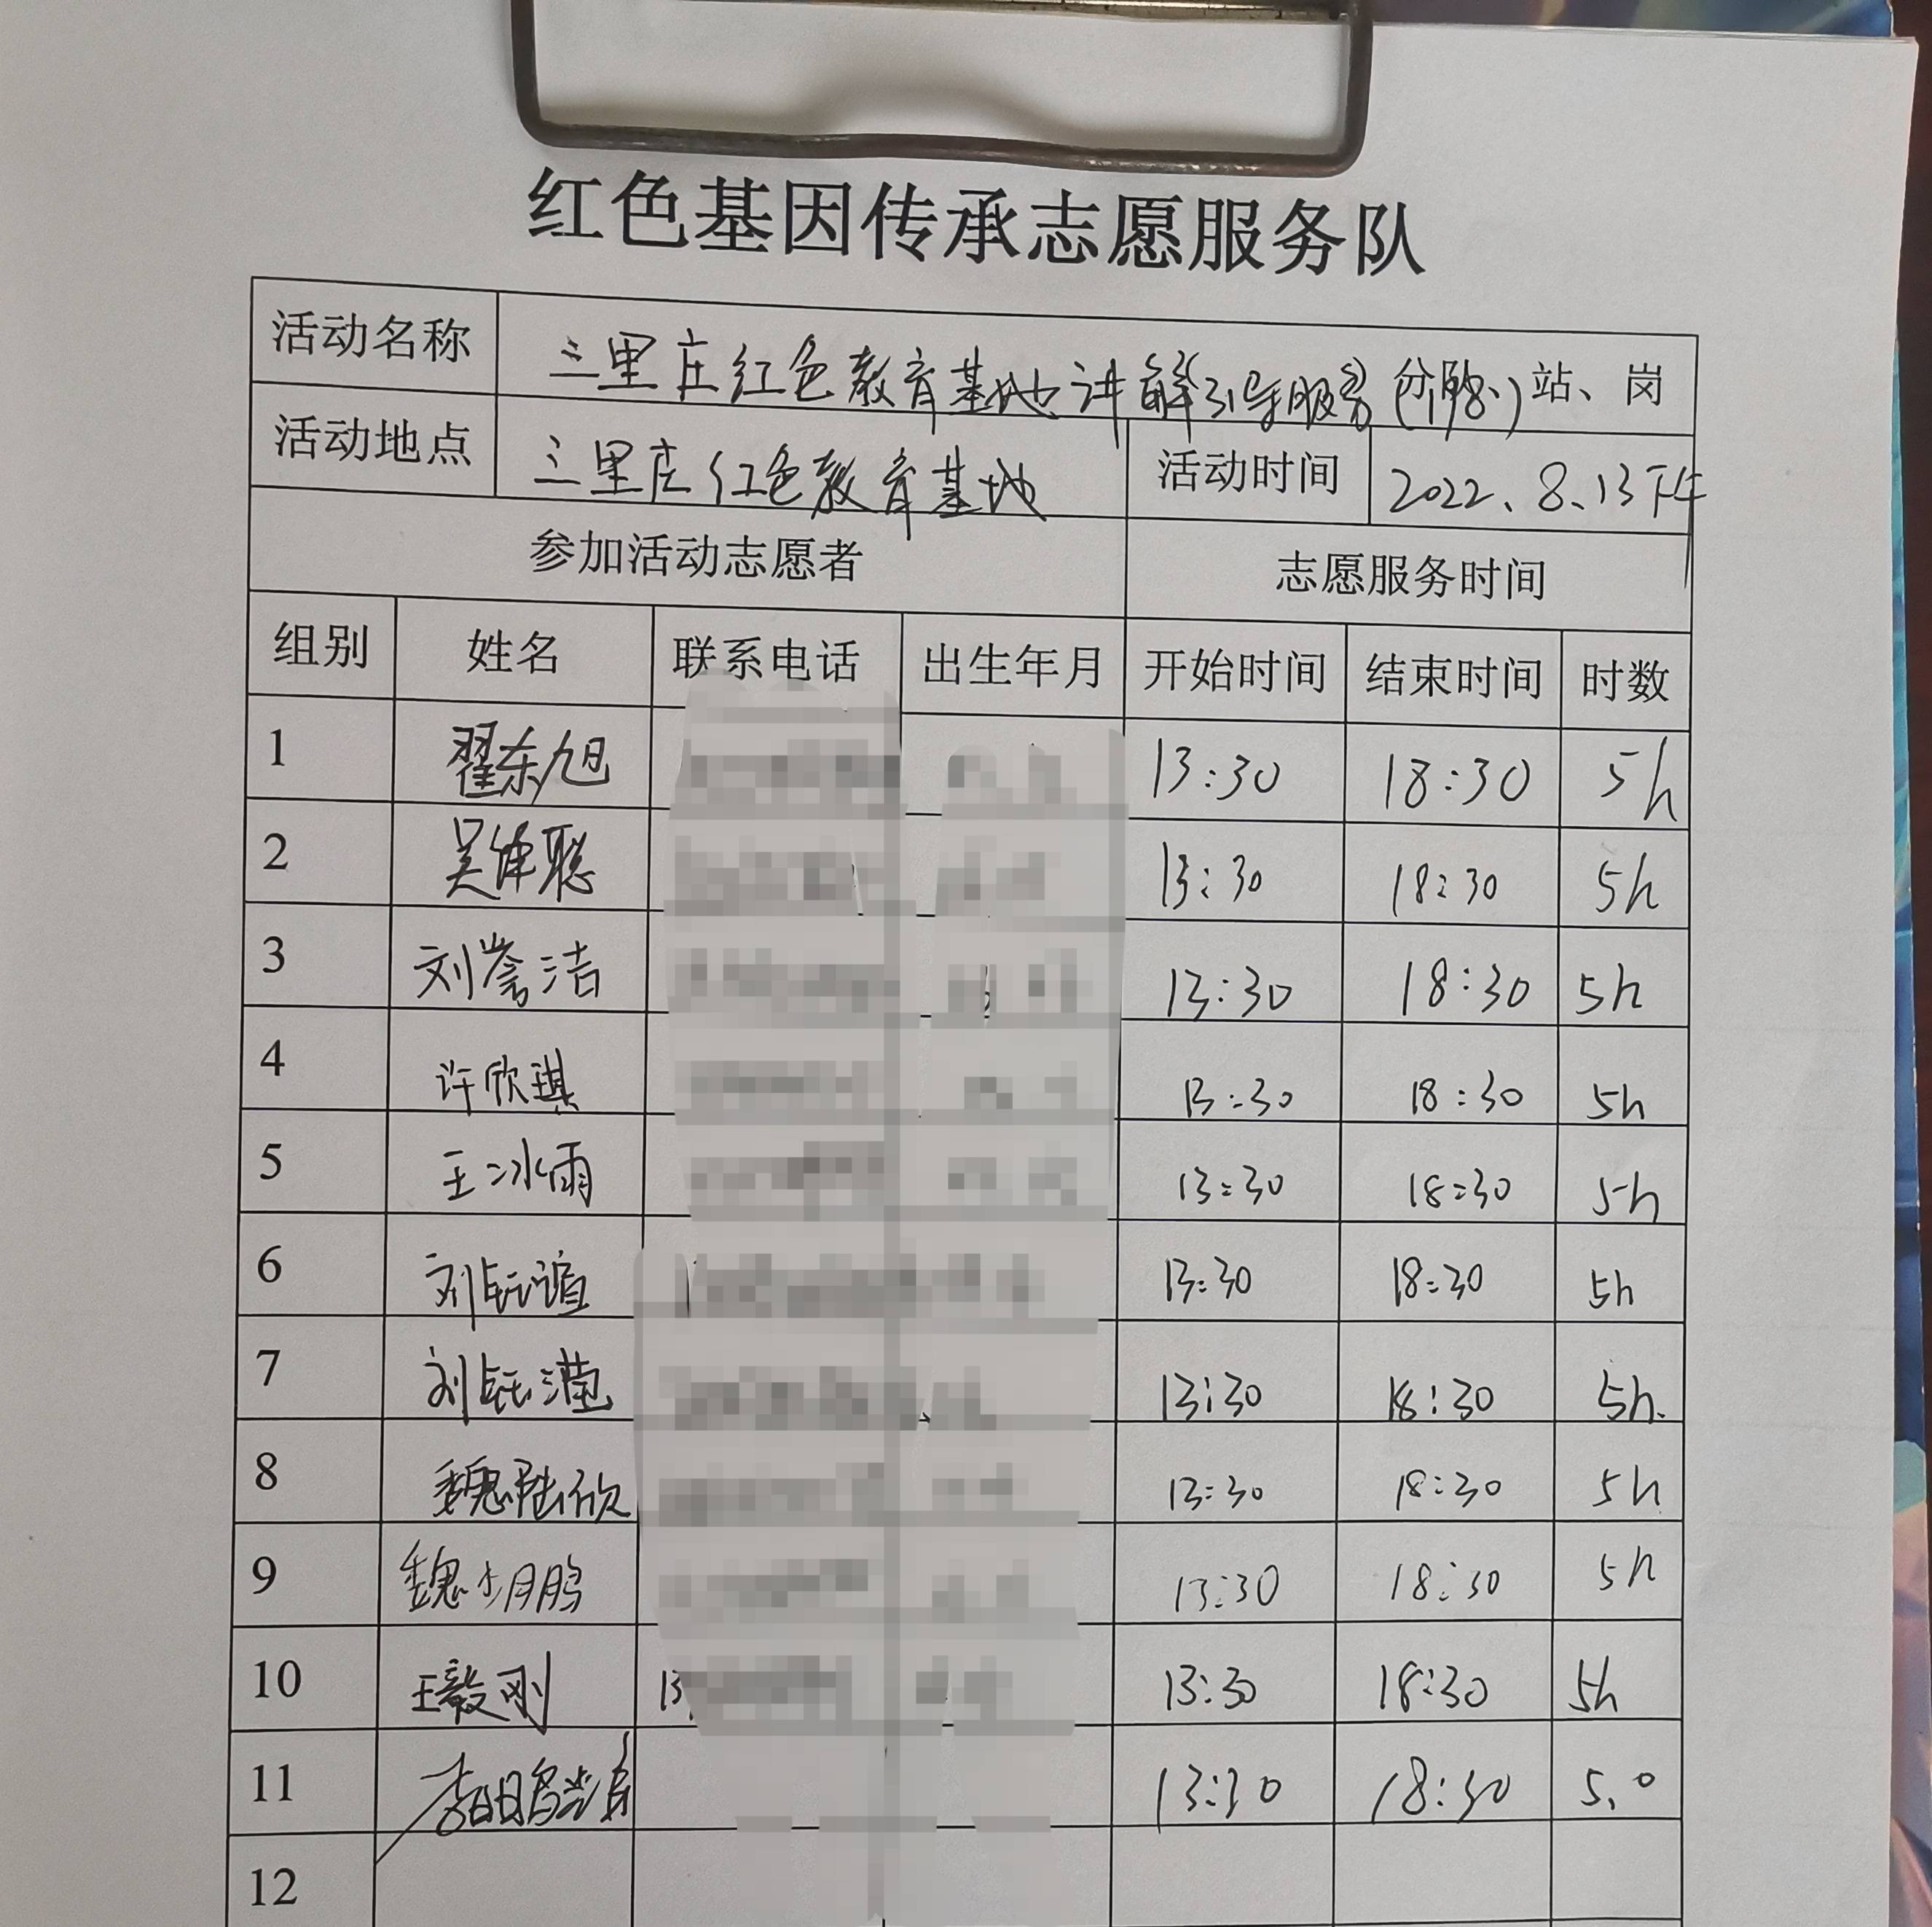 红色基因传承志愿服务队
活动名称 三里庄红色教育基地讲解引导服务 站、岗
活动地点 三里庄红色教育基地 活动时间 2022、8、13下午
参加活动志愿者 志愿服务时间
组别 姓名 联系电话 出生年月 开始时间 结束时间 时数
1 翟东旭 13:30 18:30 5h
2 13:30 18:30 5h
3 刘誉洁 13:30 18:30 5h
4 许欣琪 13:30 18:30 5h
5 王冰雨 13:30 18:30 5h
6 13:30 18:30 5h
7 13:30 18:30 5h.
8 13:30 18:30 5h
9 13:30 18:30 5h
10 王毅刚 13 13:30 18:30 5h
11 13:30 18:30 5.0
12